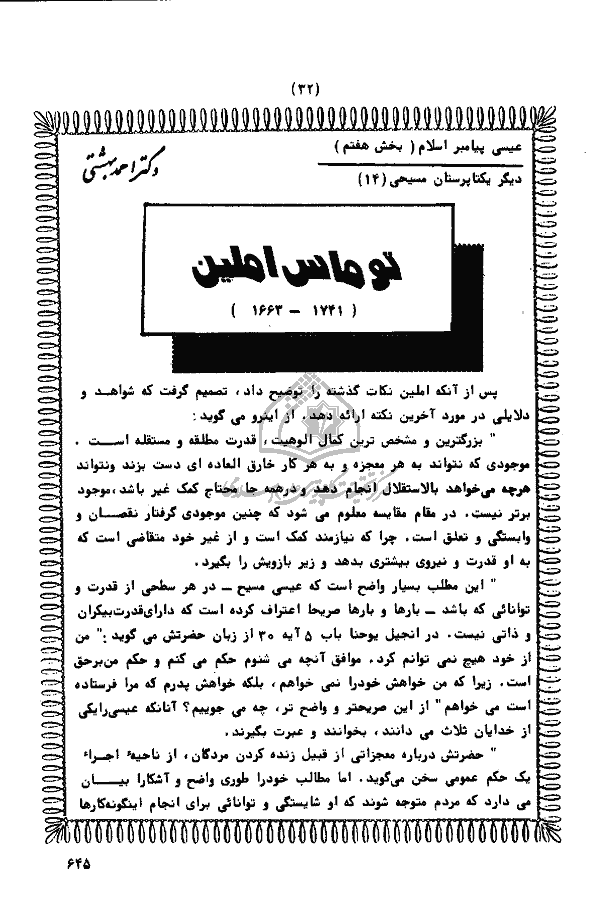 (۳۲)
عیسی پیامبر اسلام ( بخش هفتم )
دکتر احمد بهشتی
دیگر یکتاپرستان مسیحی (۱۴)
توماس املین
( ۱۷۴۱ – ۱۶۶۳ )
پس از آنکه املین نکات گذشته را توضیح داد ، تصمیم گرفت که شواهد و
دلایلی در مورد آخرین نکته ارائه دهد . از اینرو می گوید :
" بزرگترین و مشخص ترین کمال الوهیت ، قدرت مطلقه و مستقله است .
موجودی که نتواند به هر معجزه و به هر کار خارق العاده ای دست بزند ونتواند
هرچه می‌خواهد بالاستقلال انجام دهد و درهمه جا محتاج کمک غیر باشد ، موجود
برتر نیست . در مقام مقایسه معلوم می شود که چنین موجودی گرفتار نقصان و
وابستگی و تعلق است . چرا که نیازمند کمک است و از غیر خود متقاضی است که
به او قدرت و نیروی بیشتری بدهد و زیر بازویش را بگیرد .
" این مطلب بسیار واضح است که عیسی مسیح – در هر سطحی از قدرت و
توانائی که باشد – بارها و بارها صریحا اعتراف کرده است که دارای‌قدرت‌بیکران
و ذاتی نیست . در انجیل یوحنا باب ۵ آیه ۳۰ از زبان حضرتش می گوید : " من
از خود هیچ نمی توانم کرد . موافق آنچه می شنوم حکم می کنم و حکم من‌برحق
است . زیرا که من خواهش خودرا نمی خواهم ، بلکه خواهش پدرم که مرا فرستاده
است می خواهم " از این صریحتر و واضح تر ، چه می جوییم ؟ آنانکه عیسی‌رایکی
از خدایان ثلاث می دانند ، بخوانند و عبرت بگیرند .
" حضرتش درباره معجزاتی از قبیل زنده کردن مردگان ، از ناحیهٔ اجراء
یک حکم عمومی سخن می‌گوید . اما مطالب خودرا طوری واضح و آشکارا بیــان
می دارد که مردم متوجه شوند که او شایستگی و توانائی برای انجام اینگونه‌کارها
۶۴۵